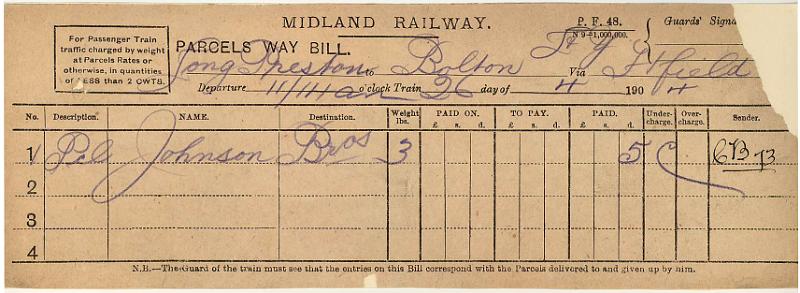 MIDLAND RAILWAY.
P. F. 48.
N 9-1,000,000.
Guards' Signa
For Passenger Train
traffic charged by weight
at Parcels Rates or
otherwise, in quantities
of LESS than 2 CWTS.
PARCELS WAY BILL.
Long Preston to Bolton Via Hfield
Departure 11/11 am o'clock Train 26 day of 4 1904
No. Description. NAME. Destination. Weight lbs. PAID ON. TO PAY. PAID. Under-charge. Over-charge. Sender.
£ s. d. £ s. d. £ s. d.
1 Pcl Johnson Bros 3 5
2
3
4
N.B.—The Guard of the train must see that the entries on this Bill correspond with the Parcels delivered to and given up by him.